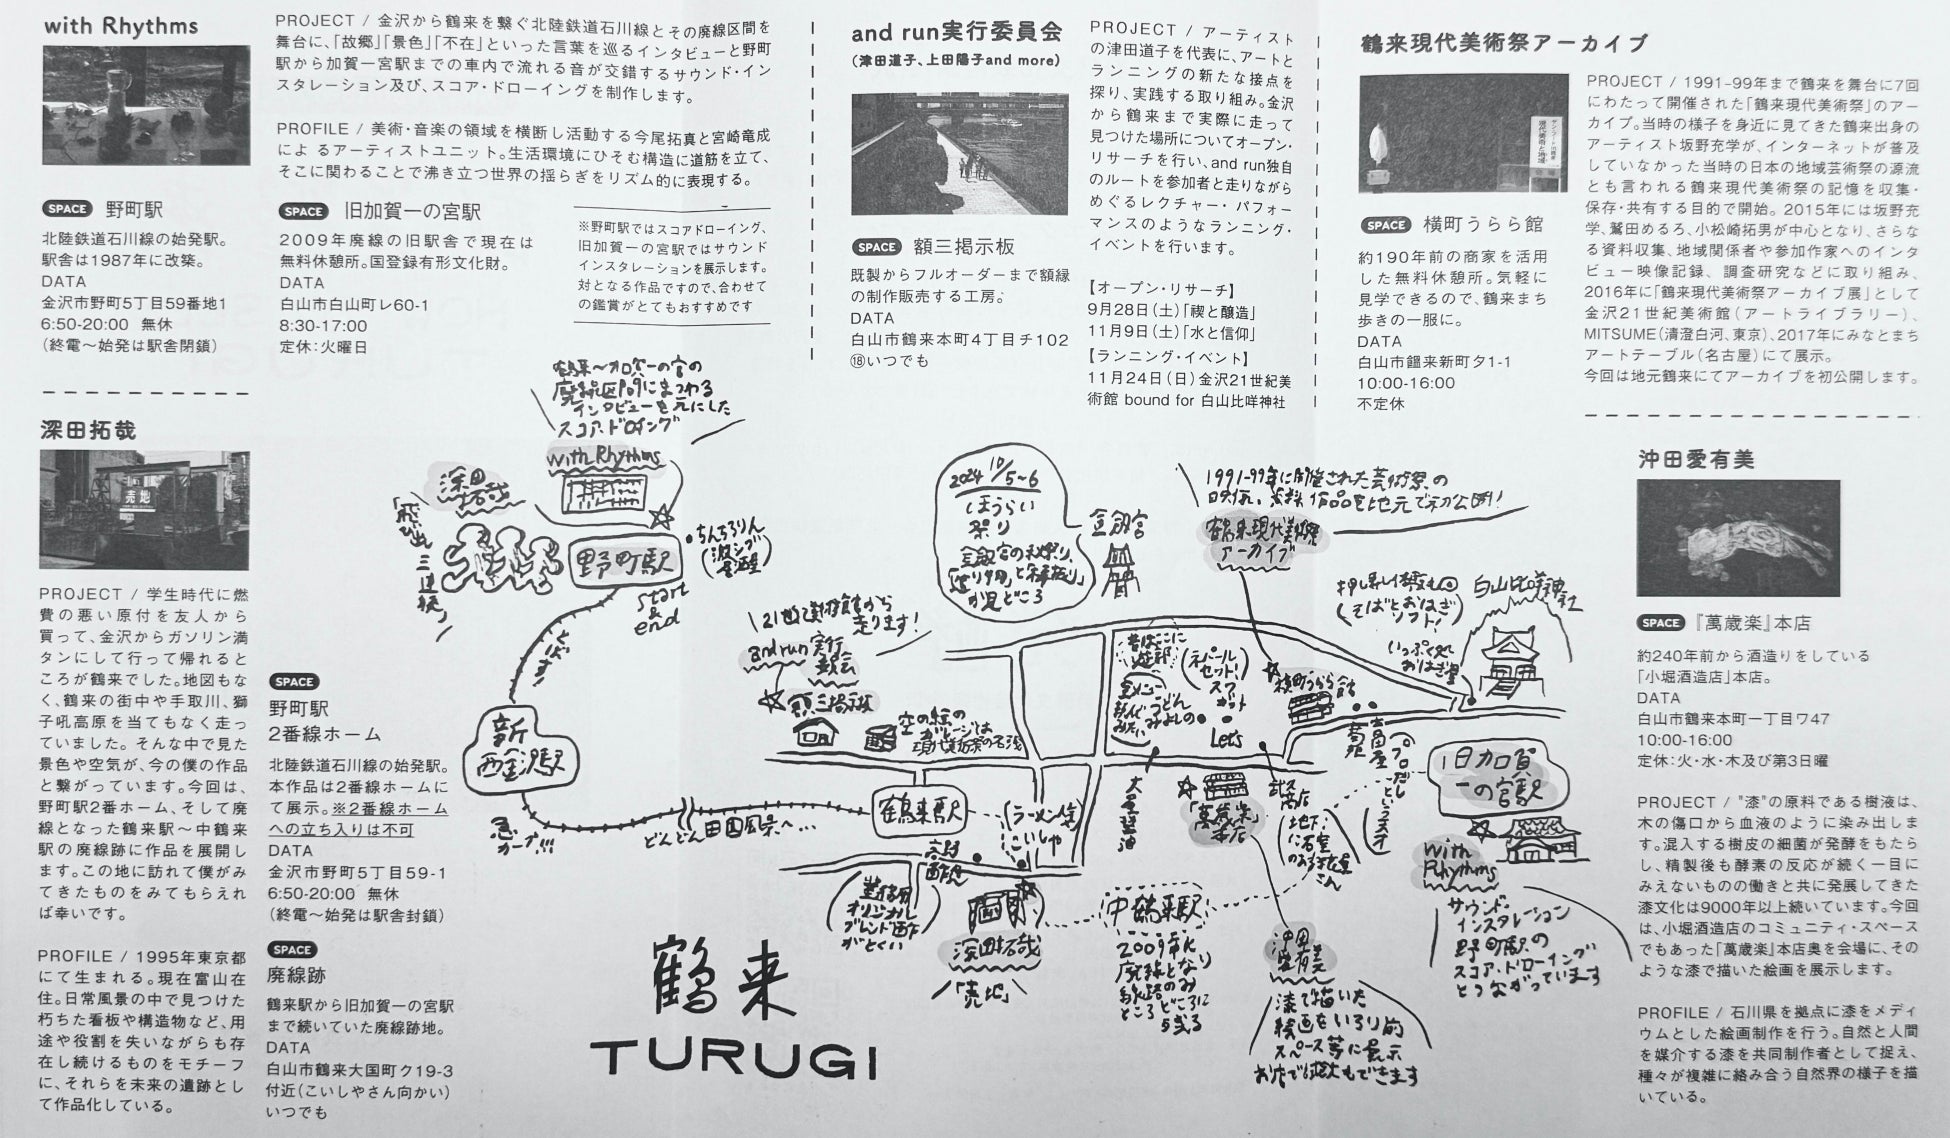 with Rhythms
PROJECT / 金沢から鶴来を繋ぐ北陸鉄道石川線とその廃線区間を
舞台に、「故郷」「景色」「不在」といった言葉を巡るインタビューと野町
駅から加賀一宮駅までの車内で流れる音が交錯するサウンド・イン
スタレーション及び、スコア・ドローイングを制作します。
PROFILE / 美術・音楽の領域を横断し活動する今尾拓真と宮崎竜成
によ るアーティストユニット。生活環境にひそむ構造に道筋を立て、
そこに関わることで沸き立つ世界の揺らぎをリズム的に表現する。
SPACE 野町駅
北陸鉄道石川線の始発駅。
駅舎は1987年に改築。
DATA
金沢市野町5丁目59番地1
6:50-20:00 無休
(終電〜始発は駅舎閉鎖)
SPACE 旧加賀一の宮駅
2009年廃線の旧駅舎で現在は
無料休憩所。国登録有形文化財。
DATA
白山市白山町レ60-1
8:30-17:00
定休:火曜日
※野町駅ではスコアドローイング、
旧加賀一の宮駅ではサウンド
インスタレーションを展示します。
対となる作品ですので、合わせて
の鑑賞がとてもおすすめです
and run実行委員会
(津田道子、上田陽子and more)
SPACE 額三掲示板
既製からフルオーダーまで額縁
の制作販売する工房。
DATA
白山市鶴来本町4丁目チ102
⑱いつでも
PROJECT / アーティスト
の津田道子を代表に、アートと
ランニングの新たな接点を
探り、実践する取り組み。金沢
から鶴来まで実際に走って
見つけた場所についてオープン・
リサーチを行い、and run独自
のルートを参加者と走りながら
めぐるレクチャー・パフォー
マンスのようなランニング・
イベントを行います。
【オープン・リサーチ】
9月28日(土)「禊と醸造」
11月9日(土)「水と信仰」
【ランニング・イベント】
11月24日(日)金沢21世紀美
術館 bound for 白山比咩神社
鶴来現代美術祭アーカイブ
現代美術と地域
SPACE 横町うらら館
約190年前の商家を活用
した無料休憩所。気軽に
見学できるので、鶴来まち
歩きの一服に。
DATA
白山市鶴来新町タ1-1
10:00-16:00
不定休
PROJECT / 1991-99年まで鶴来を舞台に7回
にわたって開催された「鶴来現代美術祭」のアー
カイブ。当時の様子を身近に見てきた鶴来出身の
アーティスト坂野充学が、インターネットが普及
していなかった当時の日本の地域芸術祭の源流
とも言われる鶴来現代美術祭の記憶を収集・
保存・共有する目的で開始。2015年には坂野充
学、鷲田めるろ、小松崎拓男が中心となり、さらな
る資料収集、地域関係者や参加作家へのインタ
ビュー映像記録、調査研究などに取り組み、
2016年に「鶴来現代美術祭アーカイブ展」として
金沢21世紀美術館(アートライブラリー)、
MITSUME(清澄白河、東京)、2017年にみなとまち
アートテーブル(名古屋)にて展示。
今回は地元鶴来にてアーカイブを初公開します。
深田拓哉
売地
PROJECT / 学生時代に燃
費の悪い原付を友人から
買って、金沢からガソリン満
タンにして行って帰れると
ころが鶴来でした。地図もな
く、鶴来の街中や手取川、獅
子吼高原を当てもなく走っ
ていました。そんな中で見た
景色や空気が、今の僕の作品
と繋がっています。今回は、
野町駅2番ホーム、そして廃
線となった鶴来駅〜中鶴来
駅の廃線跡に作品を展開し
ます。この地に訪れて僕がみ
てきたものをみてもらえれ
ば幸いです。
PROFILE / 1995年東京都
にて生まれる。現在富山在
住。日常風景の中で見つけた
朽ちた看板や構造物など、用
途や役割を失いながらも存
在し続けるものをモチーフ
に、それらを未来の遺跡とし
て作品化している。
SPACE
野町駅
2番線ホーム
北陸鉄道石川線の始発駅。
本作品は2番線ホームに
て展示。※2番線ホーム
への立ち入りは不可
DATA
金沢市野町5丁目59-1
6:50-20:00 無休
(終電〜始発は駅舎封鎖)
SPACE
廃線跡
鶴来駅から旧加賀一の宮駅
まで続いていた廃線跡地。
DATA
白山市鶴来大国町ク19-3
付近(こいしやさん向かい)
いつでも
鶴来〜加賀一の宮の
廃線区間にまつわる
インタビューを元にした
スコア・ドローイング
with Rhythms
深田拓哉
野町駅
start
&
end
ちんちろりん
(渋シブ居酒屋)
新西金沢駅
急カーブ!!!
どんどん田園風景へ...
21世紀美術館から
走ります!
and run 実行
委員会
額三掲示板
鶴来駅
ラーメン
こいしや
深田拓哉
「売地」
中鶴来駅
2009年に
廃線となり
線路のみ
ところどころに
残る
2024 10/5~6
ほうらい
祭り
が見どころ
金劔宮
1991-99年に開催された芸術祭の
作品を地元で初公開!
鶴来現代美術祭
アーカイブ
(そばとおはぎ
ソフト!)
いっぷく処
おはぎ屋
白山比咩神社
横町うらら館
Let's
「萬歳楽」
本店
旧加賀
一の宮駅
with
Rhythms
サウンド・
インスタレーション
野町駅の
スコア・ドローイング
とつながっています
沖田
愛有美
漆で描いた
絵画をいろり的
スペース等に展示
鶴来
TURUGI
沖田愛有美
SPACE 『萬歳楽』本店
約240年前から酒造りをしている
「小堀酒造店」本店。
DATA
白山市鶴来本町一丁目ワ47
10:00-16:00
定休:火・水・木及び第3日曜
PROJECT / "漆"の原料である樹液は、
木の傷口から血液のように染み出しま
す。混入する樹皮の細菌が発酵をもたら
し、精製後も酵素の反応が続く一目に
みえないものの働きと共に発展してきた
漆文化は9000年以上続いています。今回
は、小堀酒造店のコミュニティ・スペース
でもあった「萬歳楽」本店奥を会場に、その
ような漆で描いた絵画を展示します。
PROFILE / 石川県を拠点に漆をメディ
ウムとした絵画制作を行う。自然と人間
を媒介する漆を共同制作者として捉え、
種々が複雑に絡み合う自然界の様子を描
いている。